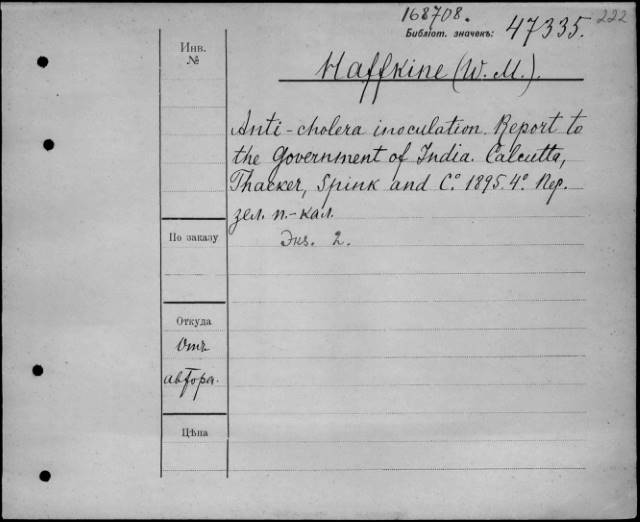 168708.
Библіот. значекъ: 47335. 222
Инв.
№
Haffkine (W. M.).
Anti-cholera inoculation. Report to
the Government of India. Calcutta,
Thacker, Spink and Cº. 1895. 4º. Пер.
зел. п.-кал.
Экз. 2.
По заказу
Откуда
Отъ
автора.
Цѣна